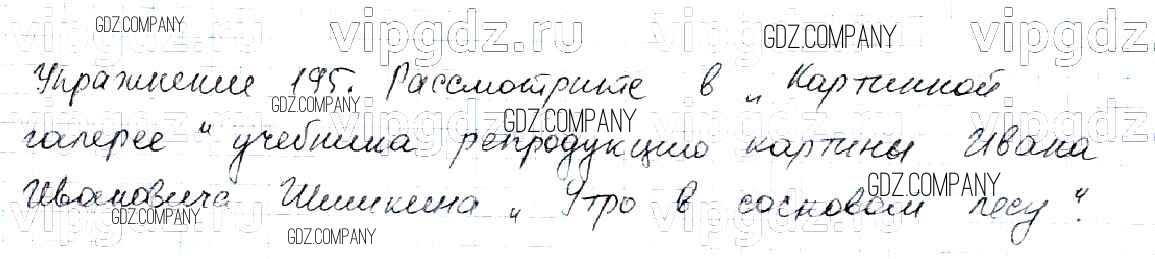 GDZ.COMPANY
vipgdz.ru vipgdz.ru vipgdz.ru
GDZ.COMPANY
Упражнение 195. Рассмотрите в „Картинной
GDZ.COMPANY
галерее“ учебника репродукцию картины Ивана
GDZ.COMPANY
Ивановича Шишкина „Утро в сосновом лесу“.
GDZ.COMPANY
GDZ.COMPANY
GDZ.COMPANY